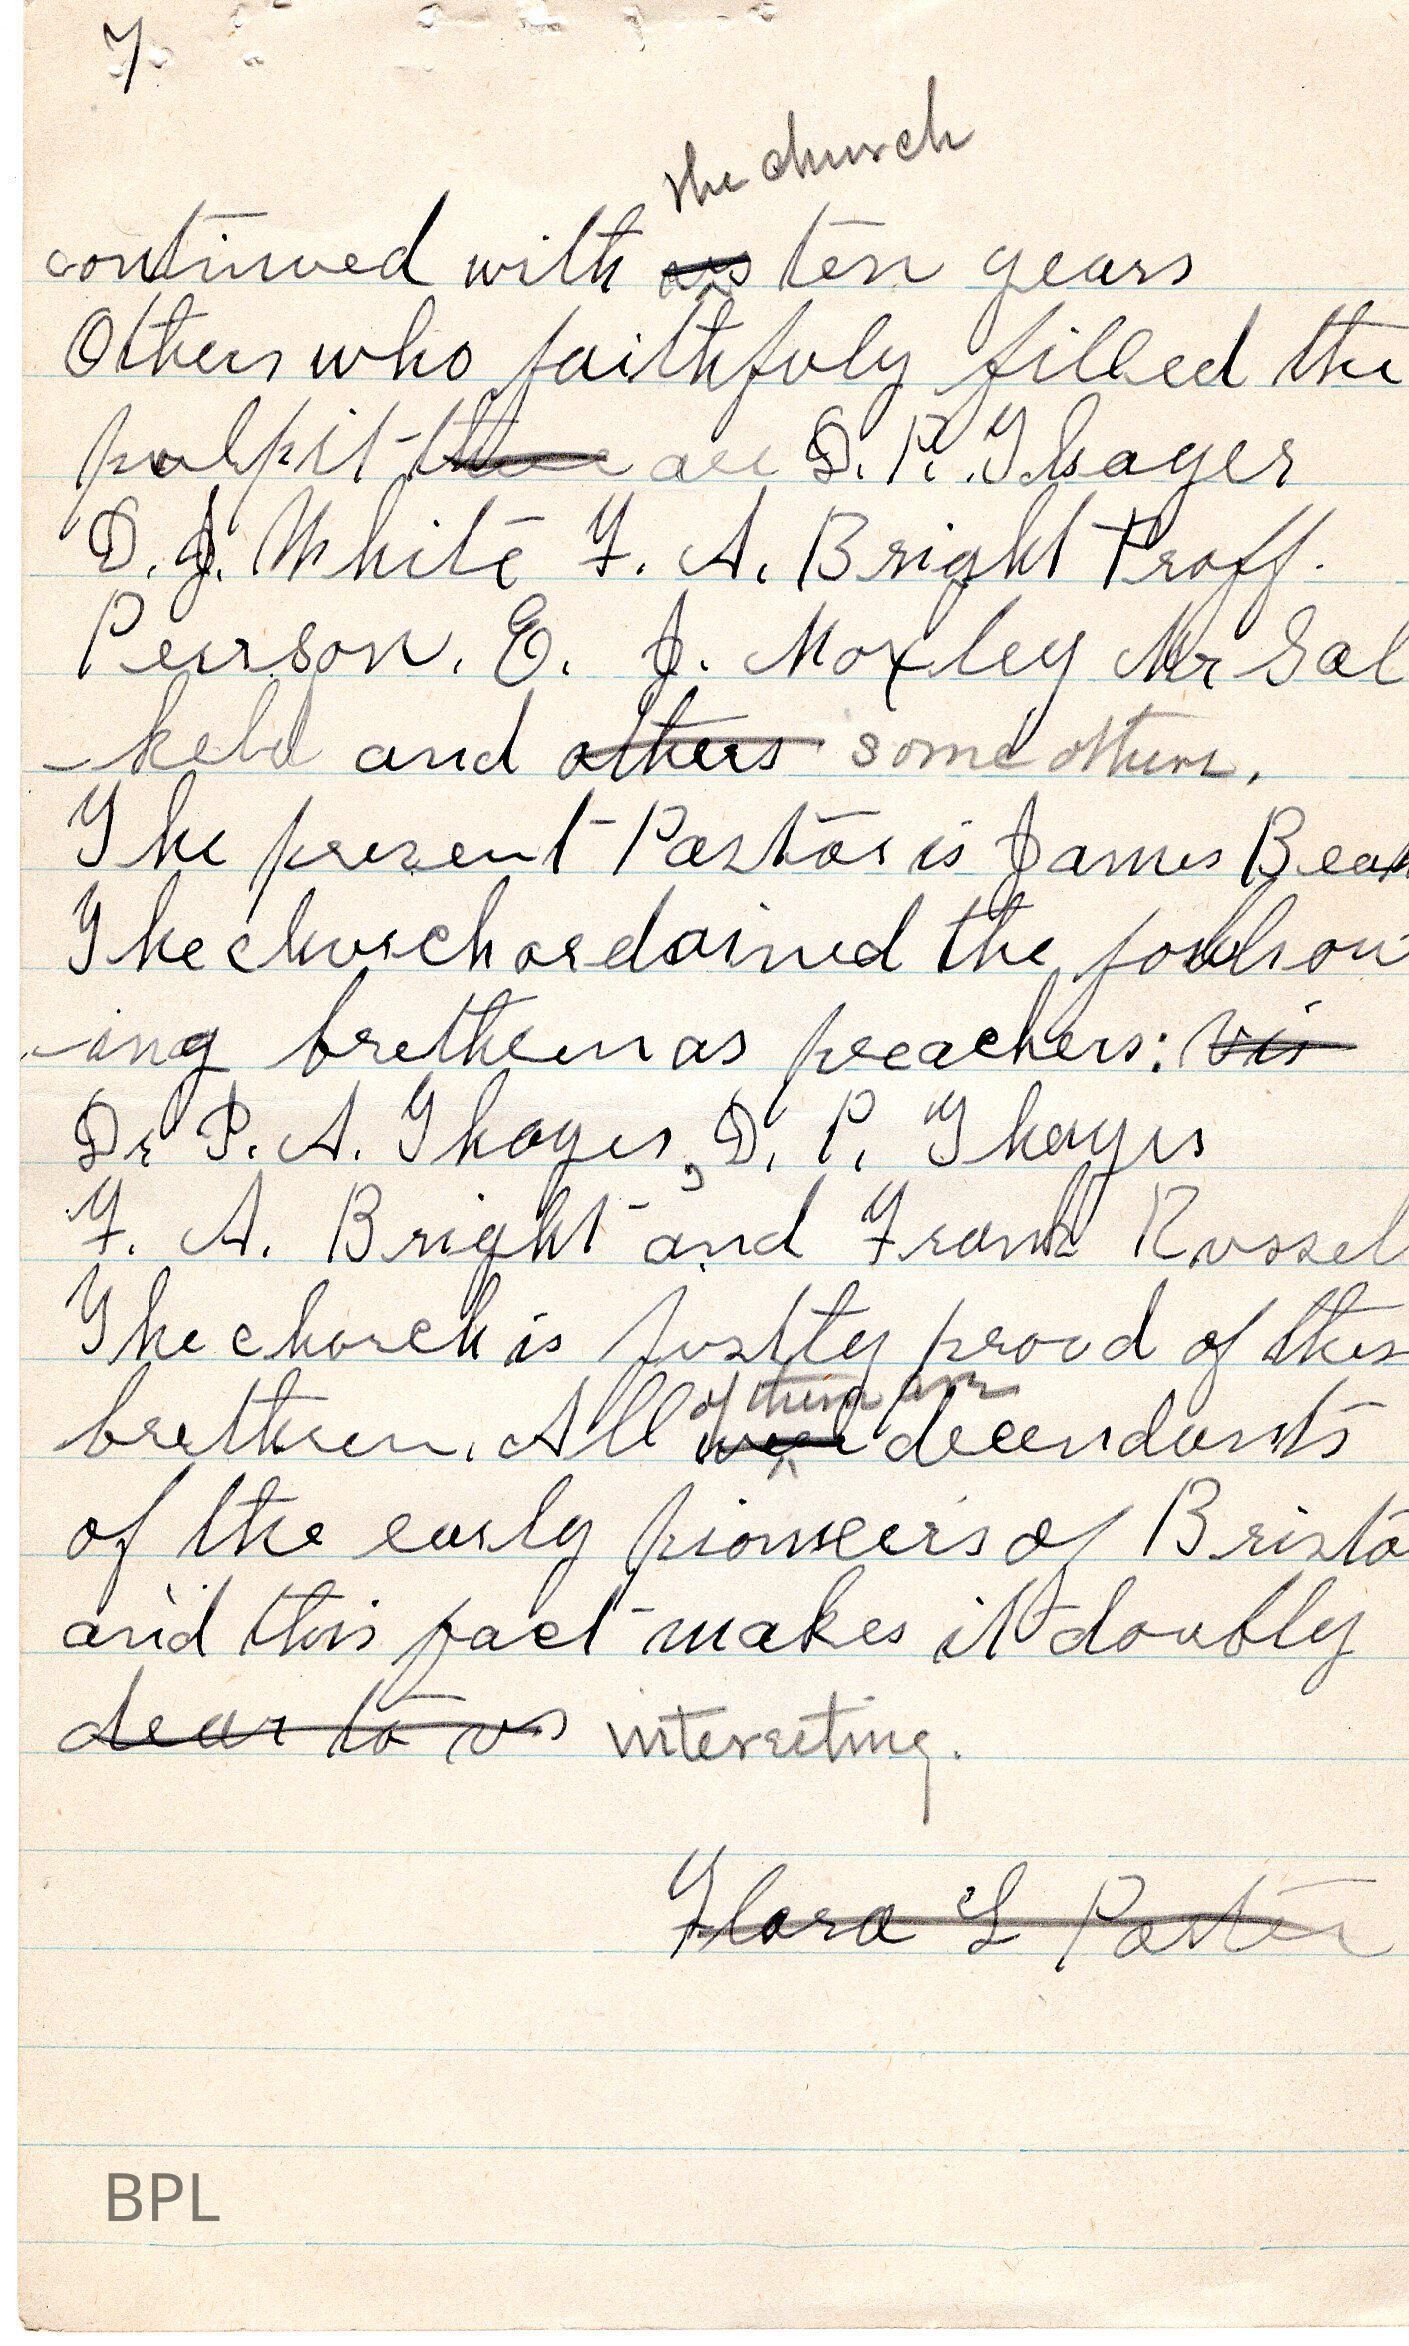 7.
the church
continued with us ten years
Others who faithfuly filled the
pulpit are D. P. Thayer
D. J. White F. A. Bright Proff.
Peirson. E. J. Moxley Mr Sal
-keld and others some others.
The present Pastor is James Bean
The church ordained the follow
-ing brethern as preachers: vis
Dr P. A. Thayer, D. P. Thayer
F. A. Bright and Frank Russel
The church is justly proud of thes
of them are
brethren. All were decendants
of the early pioneers of Bristo
and this fact makes it doubly
dear to us interesting.
Flora L Porter
BPL